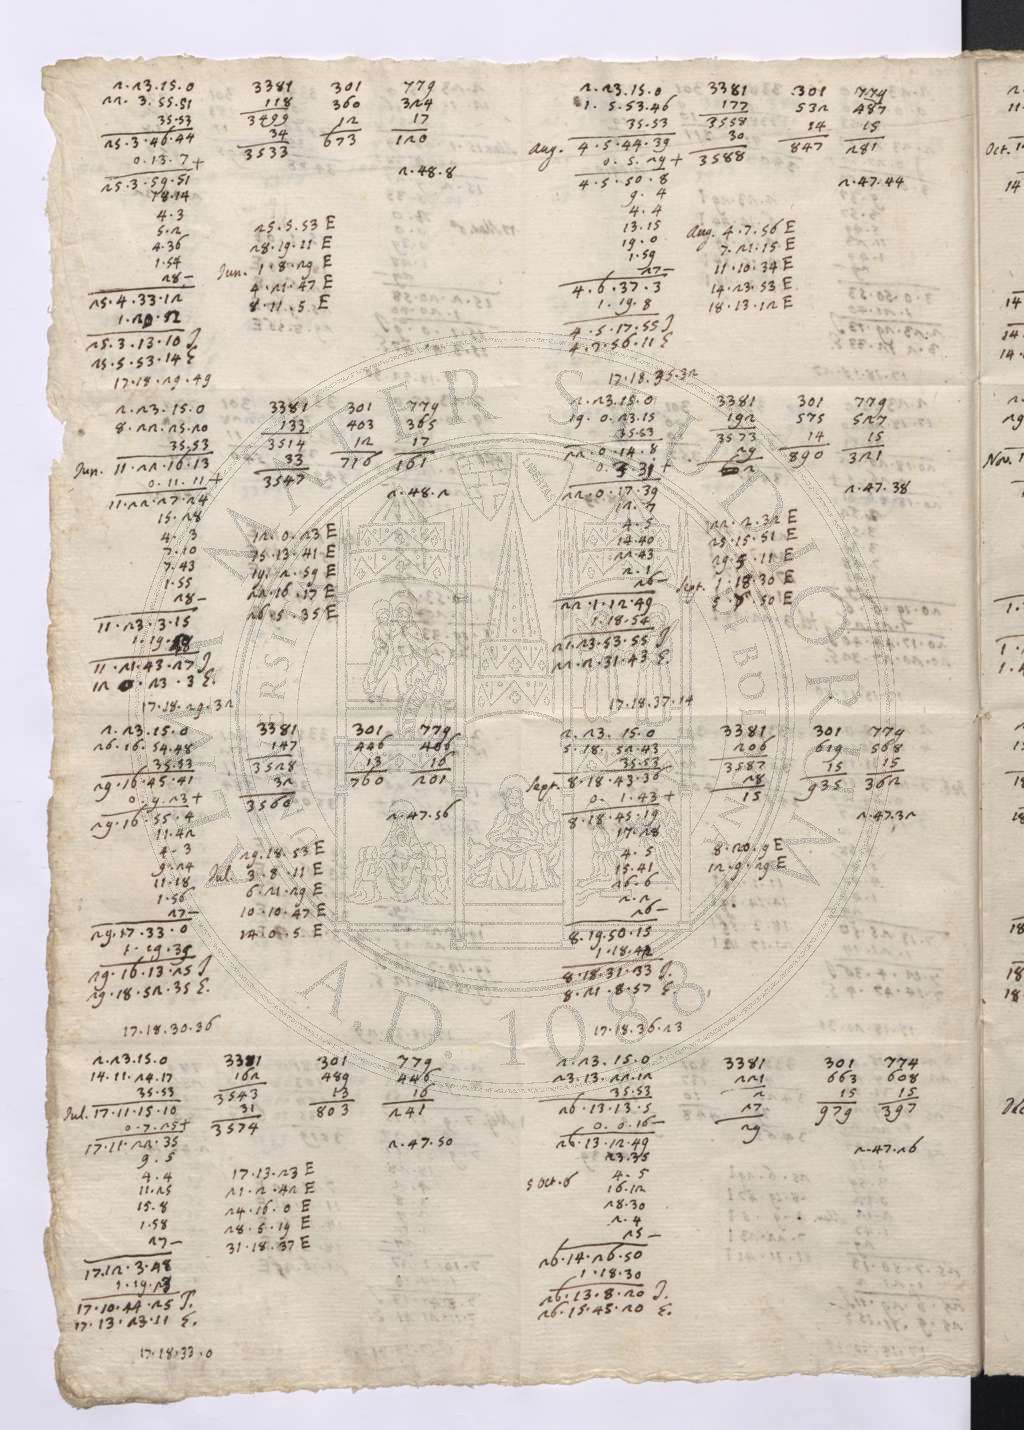 2.23.15.0 3381 301 779
22.3.55.51 118 360 324
35.53 3499 12 17
25.3.46.44 34 673 120
0.13.7+ 3533
25.3.59.51 2.48.8
18.14
4.3
5.2 25.5.53 E
4.36 28.19.21 E
1.54 Jun. 1.8.29 E
28– 4.21.47 E
25.4.33.12 8.11.5 E
1.20.2
25.3.13.10 J.
25.5.53.14 E.
17.18.29.49
2.23.15.0 3381 301 779
8.22.25.20 133 403 365
35.53 3514 12 17
Jun. 11.22.16.13 33 716 161
0.11.11+ 3547
11.22.27.24 2.48.2
15.28
4.3 12.0.23 E
7.10 15.13.41 E
7.43 19.2.59 E
1.55 22.16.17 E
28– 26.5.35 E
11.23.3.15
1.19.48
11.21.43.27 J.
12.0.23.3 E.
17.18.29.32
2.23.15.0 3381 301 779
26.16.54.48 147 446 406
35.53 3528 13 16
29.16.45.41 32 760 201
0.9.23+ 3560
29.16.55.4 2.47.56
11.42
4.3 29.18.53 E
9.24 Jul. 3.8.11 E
11.18 6.21.29 E
1.56 10.10.47 E
27– 14.0.5 E
29.17.33.0
1.19.35
29.16.13.25 J.
29.18.52.35 E.
17.18.30.36
2.23.15.0 3381 301 779
14.11.24.17 162 489 446
35.53 3543 13 16
Jul. 17.11.15.10 31 803 241
0.7.25+ 3574
17.11.22.35 2.47.50
9.5
4.4 17.13.23 E
11.25 21.2.42 E
15.8 24.16.0 E
1.58 28.5.19 E
27– 31.18.37 E
17.12.3.48
1.19.23
17.10.44.25 J.
17.13.23.11 E.
17.18.33.0
2.23.15.0 3381 301 779
1.5.53.46 177 532 487
35.53 3558 14 15
Aug. 4.5.44.39 30 847 281
0.5.29+ 3588
4.5.50.8 2.47.44
9.4
4.4
13.15 Aug. 4.7.56 E
19.0 7.21.15 E
1.59 11.10.34 E
27– 14.23.53 E
4.6.37.3 18.13.12 E
1.19.8
4.5.17.55 J.
4.7.56.11 E.
17.18.35.32
2.23.15.0 3381 301 779
19.0.23.15 192 575 527
35.53 3573 14 15
22.0.14.8 29 890 321
0.3.31+ 2
22.0.17.39 2.47.38
12.7
4.5 22.2.32 E
14.40 25.15.51 E
22.43 29.5.11 E
2.1 Sept. 1.18.30 E
26– 5.7.50 E
22.1.12.49
1.18.54
21.23.53.55 J.
22.2.31.43 E.
17.18.37.14
2.23.15.0 3381 301 779
5.18.52.43 206 619 568
35.53 3587 15 15
Sept. 8.18.43.36 28 935 362
0.1.43+ 15
8.18.45.19 2.47.32
17.28
4.5 8.20.9 E
15.41 12.9.29 E
26.6
2.2
26–
8.19.50.15
1.18.42
8.18.31.33 J.
8.21.8.57 E.
17.18.36.23
2.23.15.0 3381 301 774
23.13.22.12 221 663 608
35.53 2 15 15
26.13.13.5 27 979 397
0.0.16– 29
26.13.12.49 2.47.26
23.35
5 Oct. 6 4.5
16.12
28.30
2.4
25–
26.14.26.50
1.18.30
26.13.8.20 J.
26.15.45.20 E.
Oct.
Nov.
ALMA MATER STUDIORUM
A.D. 1088